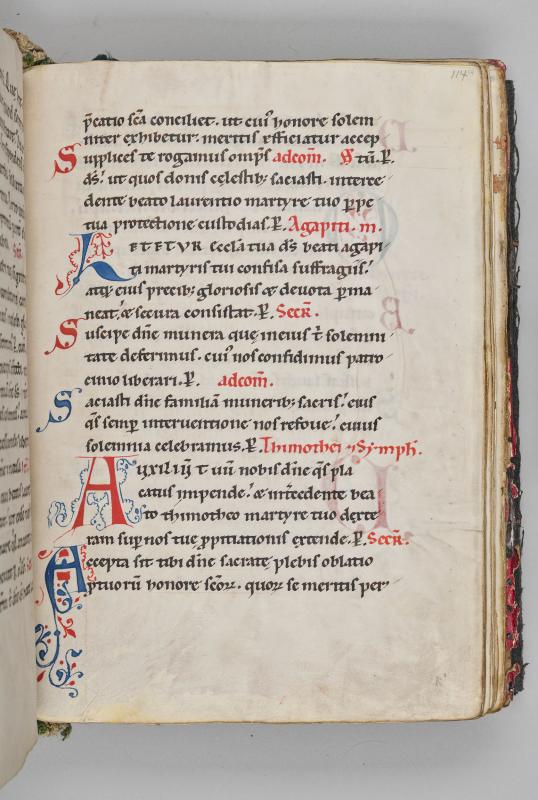 114
p̃catio sc̃a conciliet. ut cui᷒ honore solem
niter exhibetur. meritis efficiatur accep
Supplices te rogamus omp̃s adcom̃. tũ. P̃.
ds̃. ut quos donis cęlestib; saciasti. interce
dente beato laurentio martyre tuo ꝑpe
tua protectione custodias. P̃. Agapiti. m.
LETETUR ęccl̃a tua ds̃ beati agapi
ti martyris tui confisa suffragiis.
atq; eius precib; gloriosis & deuota ꝑma
neat. & secura consistat. P̃. Secr̃.
Suscipe dñe munera quę in eius t̃ solemni
tate deferimus. cui᷒ nos confidimus patro
cinio liberari. P̃. adcom̃.
Saciasti dñe familiã munerib; sacris. eius
qs̃ semꝑ interuentione nos refoue. cuius
solemnia celebramus. P̃. Thimothei & Symph̃.
Auxiliũ tuũ nobis dñe qs̃ pla
catus impende. & int̃cedente bea
to thimotheo martyre tuo dexte
ram suꝑ nos tuę ꝓpitiationis extende. P̃. Secr̃.
Accepta sit tibi dñe sacratę plebis oblatio
ꝓ tuorũ honore sc̃oꝝ. quoꝝ se meritis per